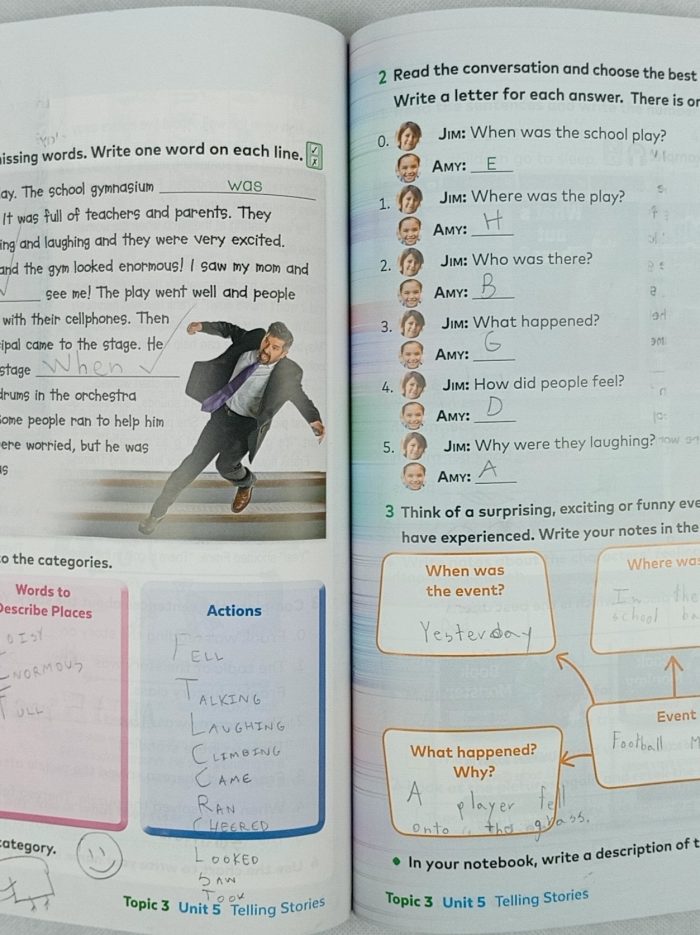 issing words. Write one word on each line.
ay. The school gymnasium was
It was full of teachers and parents. They
ing and laughing and they were very excited.
and the gym looked enormous! I saw my mom and
see me! The play went well and people
with their cellphones. Then
ipal came to the stage. He
stage When
drums in the orchestra
ome people ran to help him
ere worried, but he was
us
to the categories.
Words to
Describe Places
OISY
ENORMOUS
FULL
Actions
FELL
TALKING
LAUGHING
CLIMBING
CAME
RAN
CHEERED
LOOKED
SAW
TOOK
category.
Topic 3 Unit 5 Telling Stories
2 Read the conversation and choose the best
Write a letter for each answer. There is on
0. JIM: When was the school play?
AMY: E
1. JIM: Where was the play?
AMY: H
2. JIM: Who was there?
AMY: B
3. JIM: What happened?
AMY: G
4. JIM: How did people feel?
AMY: D
5. JIM: Why were they laughing?
AMY: A
3 Think of a surprising, exciting or funny eve
have experienced. Write your notes in the
When was
the event?
Yesterday
Where was
In the
school ba
Event
Football M
What happened?
Why?
A player fell
onto the grass.
• In your notebook, write a description of t
Topic 3 Unit 5 Telling Stories